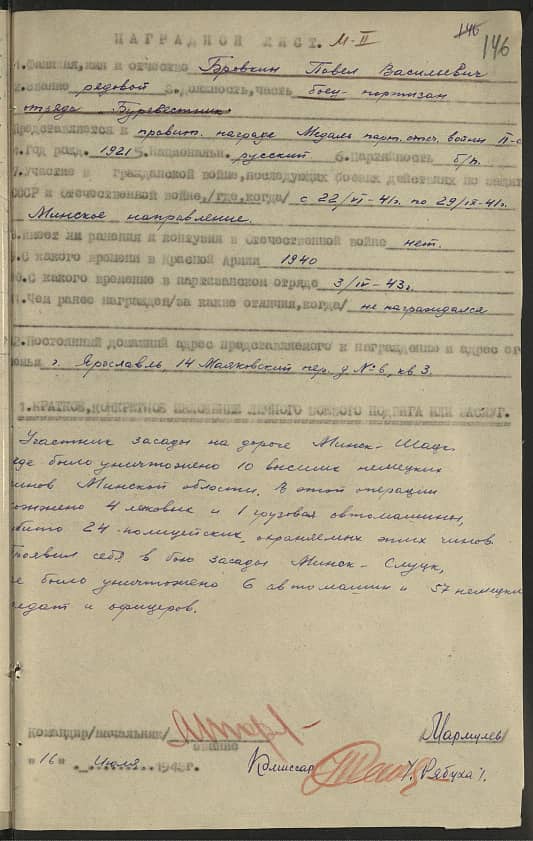 146
146
НАГРАДНОЙ ЛИСТ. М-II
1.Фамилия,имя и отчество Бровкин Павел Васильевич
2.звание рядовой 3.Должность,часть боец-партизан
отряда Буревестник
Представляется к правит. награде Медаль парт. отеч. войны II-
4.Год рожд. 1921 5.Национальн. русский 6.Партийность б/п.
7.Участие в гражданской войне,последующих боевых действиях по защит
СССР и отечественной войне,/где,когда/ с 22/VI-41г. по 29/VI-41г.
Минское направление.
8.имеет ли ранения и контузии в Отечественной войне нет.
9.С какого времени в Красной Армии 1940
10.С какого времение в партизанском отряде 3/IV-43г.
11.Чем ранее награжден/за какие отличия,когда/ не награждался
12.Постоянный домашний адрес представляемого к награждению и адрес ег
семьи г. Ярославль, 14 Маяковский пер. д №6, кв 3.
1.КРАТКОЕ,КОНКРЕТНОЕ ИЗЛОЖЕНИЕ ЛИЧНОГО БОЕВОГО ПОДВИГА ИЛИ ЗАСЛУГ.
Участник засады на дороге Минск-
где было уничтожено 10 высших немецких
чинов Минской области. В этой операции
ожжено 4 легковых и 1 грузовая автомашины,
бито 24-полицейских, охраняемых этих чинов.
Проявил себя в бою засады Минск-Слуцк,
где было уничтожено 6 автомашин и 57 немецки
солдат и офицеров.
Командир/начальник/ /Мармулев/
звание
"16" Июля 194 г. Комиссар /Рябуха/.